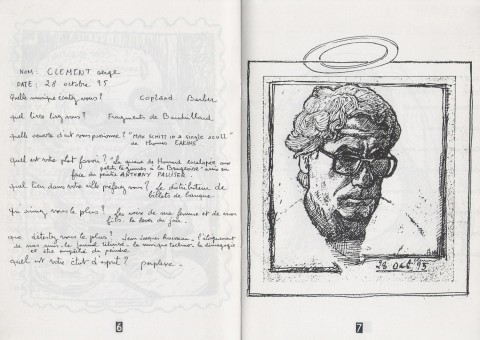 NOM: CLEMENT serge
DATE: 28 octobre 95
quelle musique écoutez vous? Copland Barber
quel livre lisez vous? Fragments de Baudrillard
quelle oeuvre d'art vous passionne? "MAX SCHITT in a single scull"
de Thomas EAKINS
quel est votre plat favori? "La queue de Homard
petits légumes à la
face du peintre ANTHONY PALLISER.
quel lieu dans votre ville préférez vous? Le distributeur de
billets de banque
qui aimez vous le plus? Les voix de ma femme et de mon
fils.
que détestez vous le plus? Jean Jacques Rousseau, l'éloignement
de mes amis, le journal télévisé, la musique techno, la démagogie
et être empêché de peindre
quel est votre état d'esprit? perplexe.
6
28 Oct 95
7